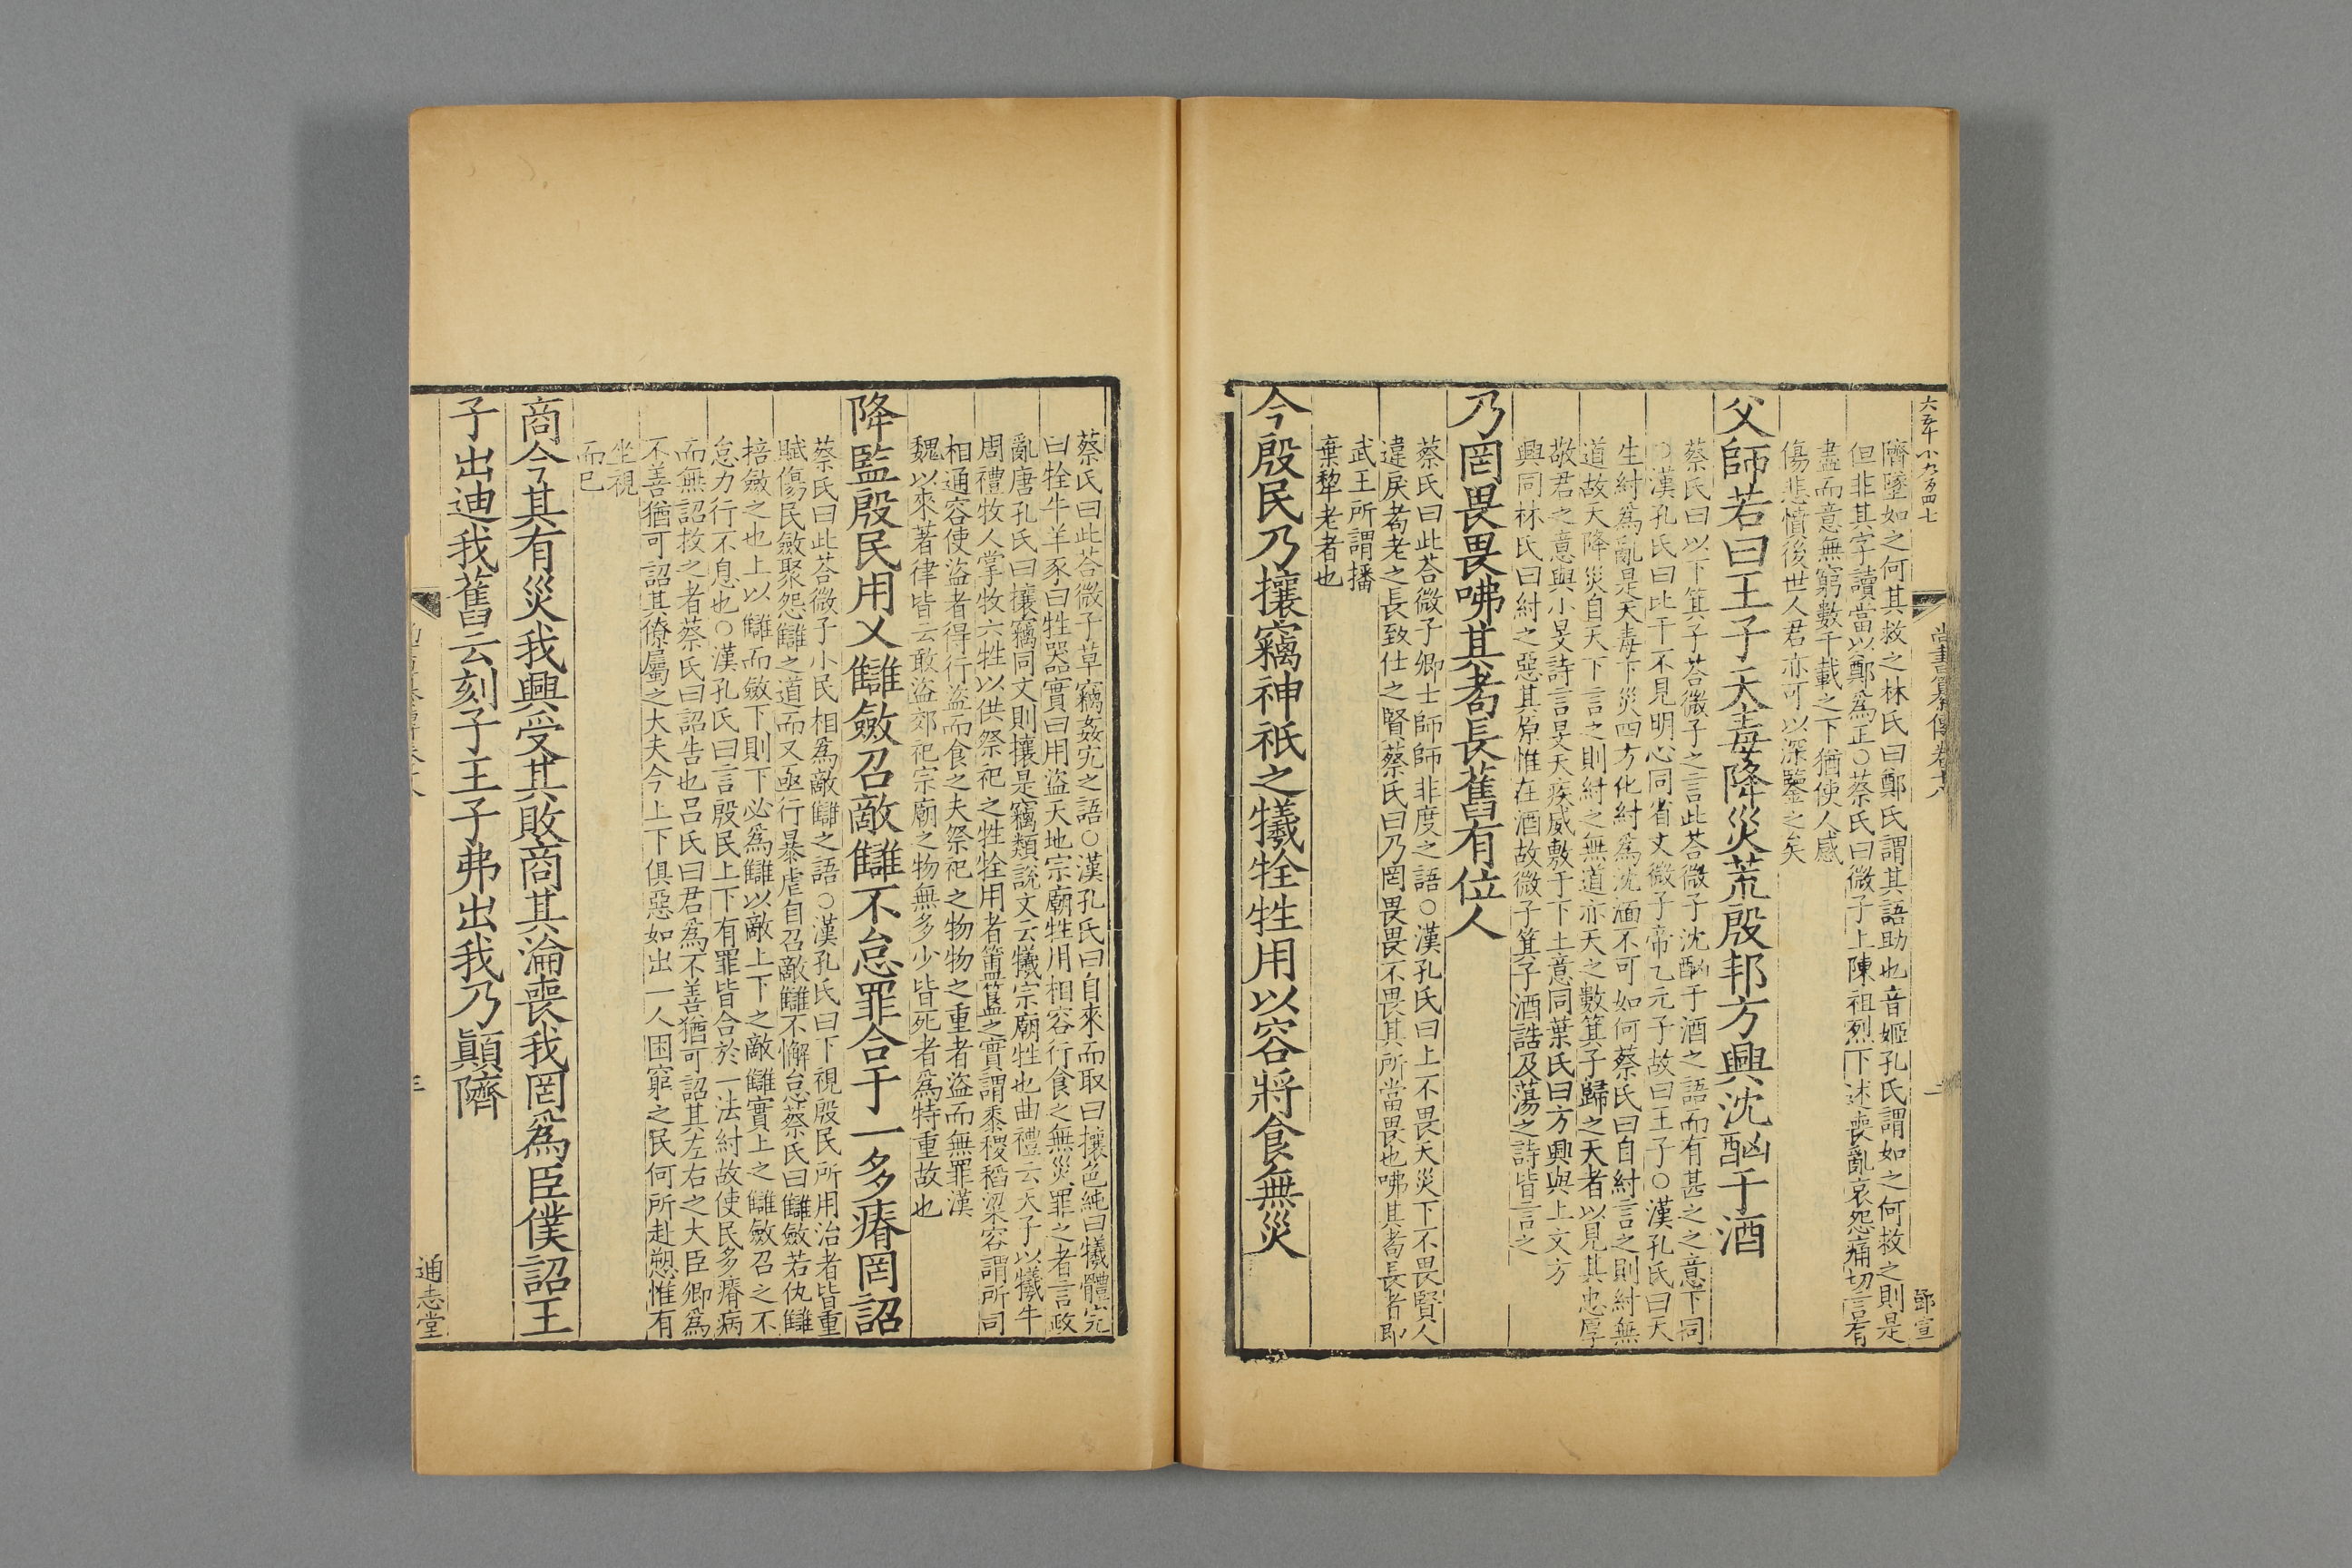 六五十小九百四七
尚書纂傳卷十八
二
鄧宣
隮墜如之何其救之林氏曰鄭氏謂其語助也音姬孔氏謂如之何救之則是
但非其字讀當以鄭爲正○蔡氏曰微子上陳祖烈下述喪亂哀怨痛切言有
盡而意無窮數千載之下猶使人感
傷悲憤後世人君亦可以深鑒之矣
父師若曰王子天毒降災荒殷邦方興沈酗于酒
蔡氏曰以下箕子荅微子之言此荅微子沈酗于酒之語而有甚之之意下同
○漢孔氏曰比干不見明心同省文微子帝乙元子故曰王子○漢孔氏曰天
生紂爲亂是天毒下災四方化紂爲沈湎不可如何蔡氏曰自紂言之則紂無
道故天降災自天下言之則紂之無道亦天之數箕子歸之天者以見其忠厚
敬君之意與小旻詩言旻天疾威敷于下土意同葉氏曰方興與上文方
興同林氏曰紂之惡其原惟在酒故微子箕子酒誥及蕩之詩皆言之
乃罔畏畏咈其耇長舊有位人
蔡氏曰此荅微子卿士師師非度之語○漢孔氏曰上不畏天災下不畏賢人
違戾耇老之長致仕之賢蔡氏曰乃罔畏畏不畏其所當畏也咈其耇長者即
武王所謂播
棄犂老者也
今殷民乃攘竊神祇之犧牷牲用以容將食無災
蔡氏曰此荅微子草竊姦宄之語○漢孔氏曰自來而取曰攘色純曰犧體完
曰牷牛羊豕曰牲器實曰用盜天地宗廟牲用相容行食之無災罪之者言政
亂唐孔氏曰攘竊同文則攘是竊類說文云犧宗廟牲也曲禮云天子以犧牛
周禮牧人掌牧六牲以供祭祀之牲牷用者簠簋之實謂黍稷稻粱容謂所司
相通容使盜者得行盜而食之夫祭祀之物物之重者盜而無罪漢
魏以來著律皆云敢盜郊祀宗廟之物無多少皆死者爲特重故也
降監殷民用乂讎斂召敵讎不怠罪合于一多瘠罔詔
蔡氏曰此荅微子小民相爲敵讎之語○漢孔氏曰下視殷民所用治者皆重
賦傷民斂聚怨讎之道而又亟行暴虐自召敵讎不懈怠蔡氏曰讎斂若仇讎
掊斂之也上以讎而斂下則下必爲讎以敵上下之敵讎實上之讎斂召之不
怠力行不息也○漢孔氏曰言殷民上下有罪皆合於一法紂故使民多瘠病
而無詔救之者蔡氏曰詔告也呂氏曰君爲不善猶可詔其左右之大臣卿爲
不善猶可詔其僚屬之大夫今上下俱惡如出一人困窮之民何所赴愬惟有
坐視
而已
商今其有災我興受其敗商其淪喪我罔爲臣僕詔王
子出迪我舊云刻子王子弗出我乃顚隮
三
通志堂